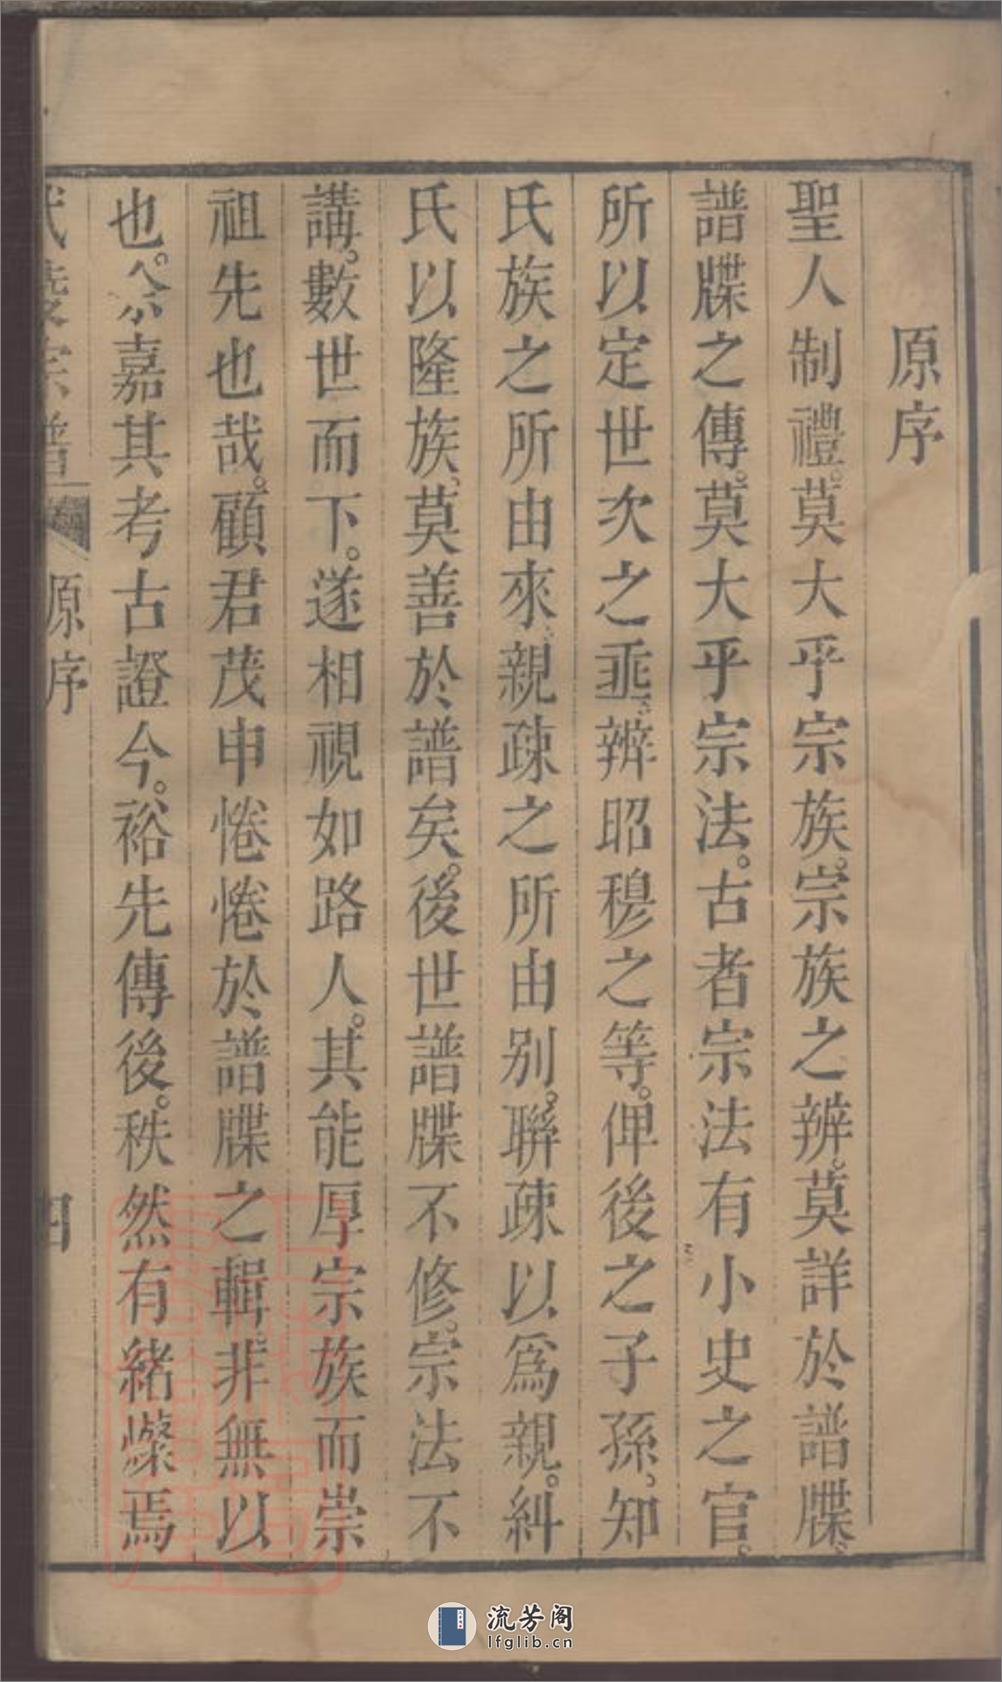 原序
聖人制禮。莫大乎宗族。宗族之辨。莫詳於譜牒。
譜牒之傳。莫大乎宗法。古者宗法有小史之官。
所以定世次之乖。辨昭穆之等。俾後之子孫、知
氏族之所由來、親疎之所由别。聯疎以爲親。糾
氏以隆族、莫善於譜矣。後世譜牒不修。宗法不
講。數世而下。遂相視如路人。其能厚宗族而崇
祖先也哉。顧君茂申惓惓於譜牒之輯。非無以
也。余嘉其考古證今。裕先傳後。秩然有緒燦焉
宗譜 原序 四
流芳阁
lfglib.cn